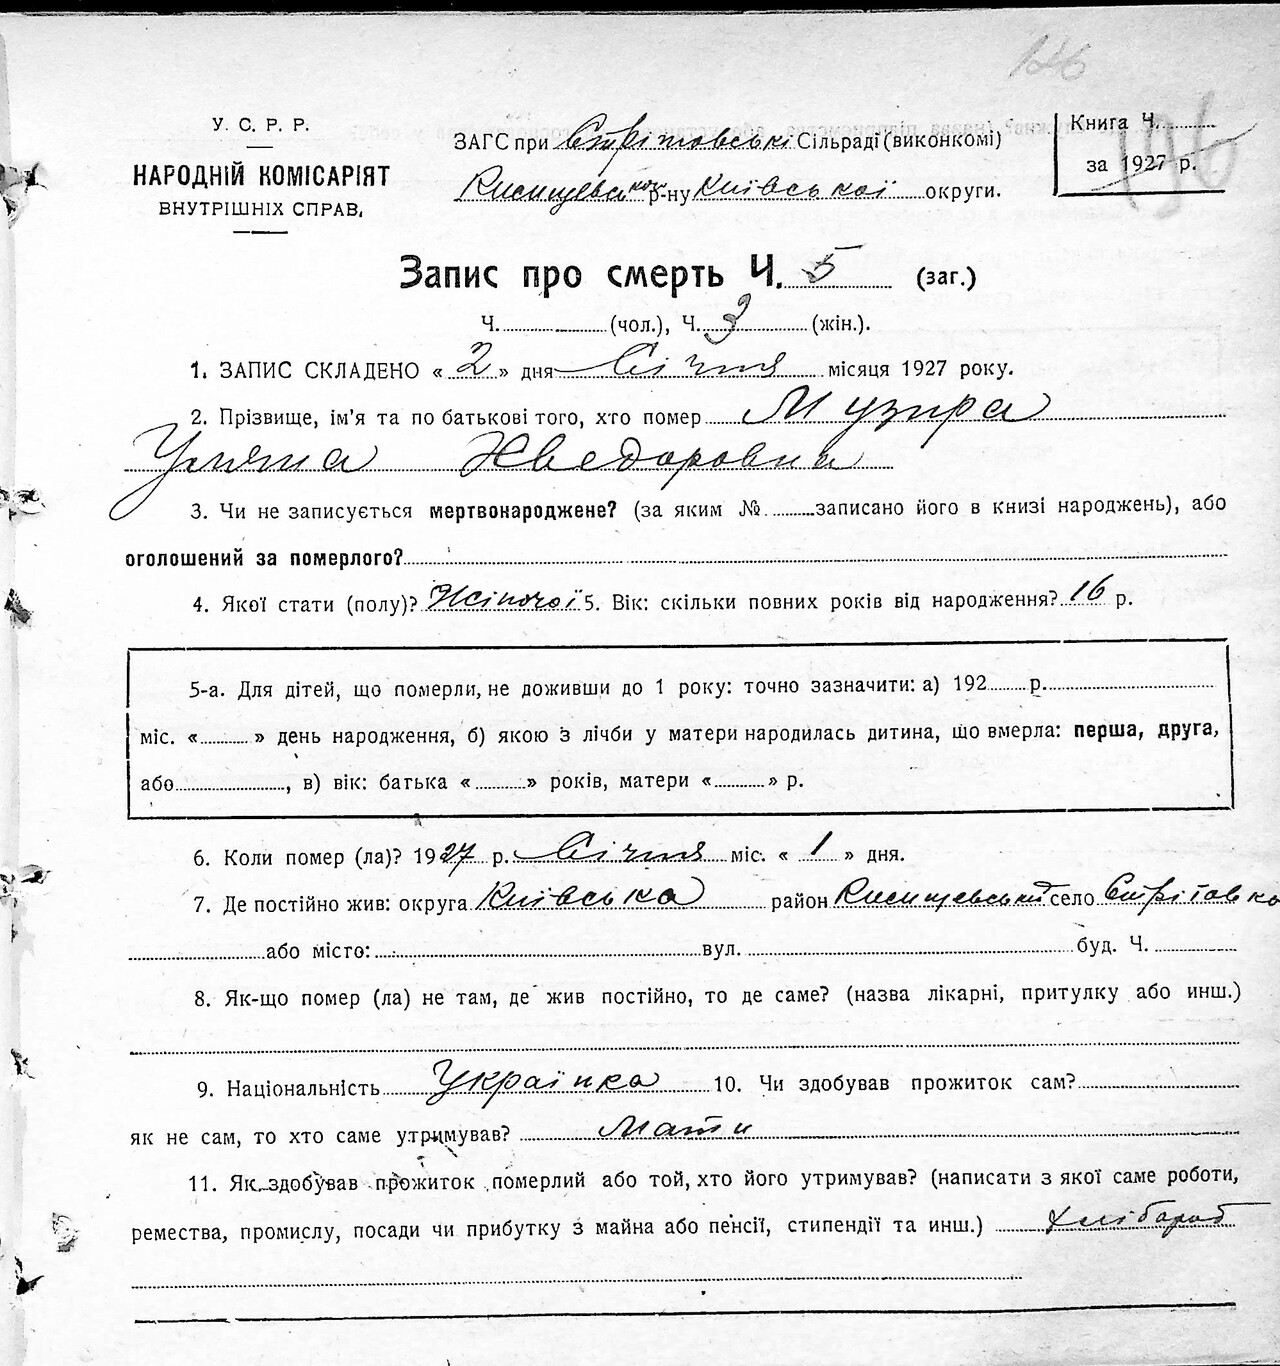 126
У. С. Р. Р.
НАРОДНІЙ КОМІСАРІЯТ
ВНУТРІШНІХ СПРАВ.
ЗАГС при Стрітовські Сільраді (виконкомі)
р-ну Київської округи.
Книга Ч.
за 1927 р.
196
Запис про смерть Ч. 5 (заг.)
Ч. (чол.), Ч. 3 (жін.).
1. ЗАПИС СКЛАДЕНО « 2 » дня Січня місяця 1927 року.
2. Прізвище, ім'я та по батькові того, хто помер Музира
Уляна Хведоровна
3. Чи не записується мертвонароджене? (за яким № записано його в книзі народжень), або
оголошений за померлого?
4. Якої стати (полу)? Жіночої 5. Вік: скільки повних років від народження? 16 р.
5-а. Для дітей, що померли, не доживши до 1 року: точно зазначити: а) 192 р.
міс. « » день народження, б) якою з лічби у матери народилась дитина, що вмерла: перша, друга,
або , в) вік: батька « » років, матери « » р.
6. Коли помер (ла)? 1927 р. Січня міс. « 1 » дня.
7. Де постійно жив: округа Київська район село Стрітовка
або місто: вул. буд. Ч.
8. Як-що помер (ла) не там, де жив постійно, то де саме? (назва лікарні, притулку або инш.)
9. Національність Українка 10. Чи здобував прожиток сам?
як не сам, то хто саме утримував? Мати
11. Як здобував прожиток померлий або той, хто його утримував? (написати з якої саме роботи,
ремества, промислу, посади чи прибутку з майна або пенсії, стипендії та инш.) хлібороб